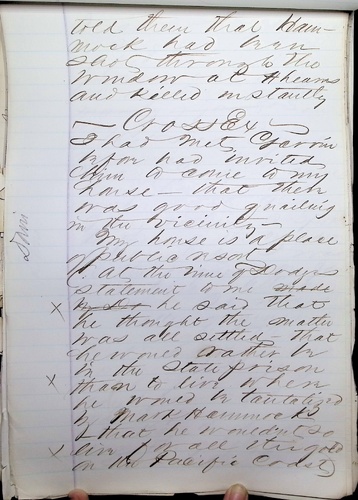 told them that Ham-
mock had been
shot through the
window at Hearns
and killed instantly
— Cross Ex —
I had met Garvin
befor had invited
him to come to my
house — that there
was good quailing
in the vicinity —
My house is a place
of public resort
At the time of Dodges
statement to me
he said that
he thought the matter
was all settled that
he would rather be
in the State prison
than to live where
he would be tantalized
by Mark Hammocks
& that he wouldn't so
live for all the gold
on the Pacific Coast